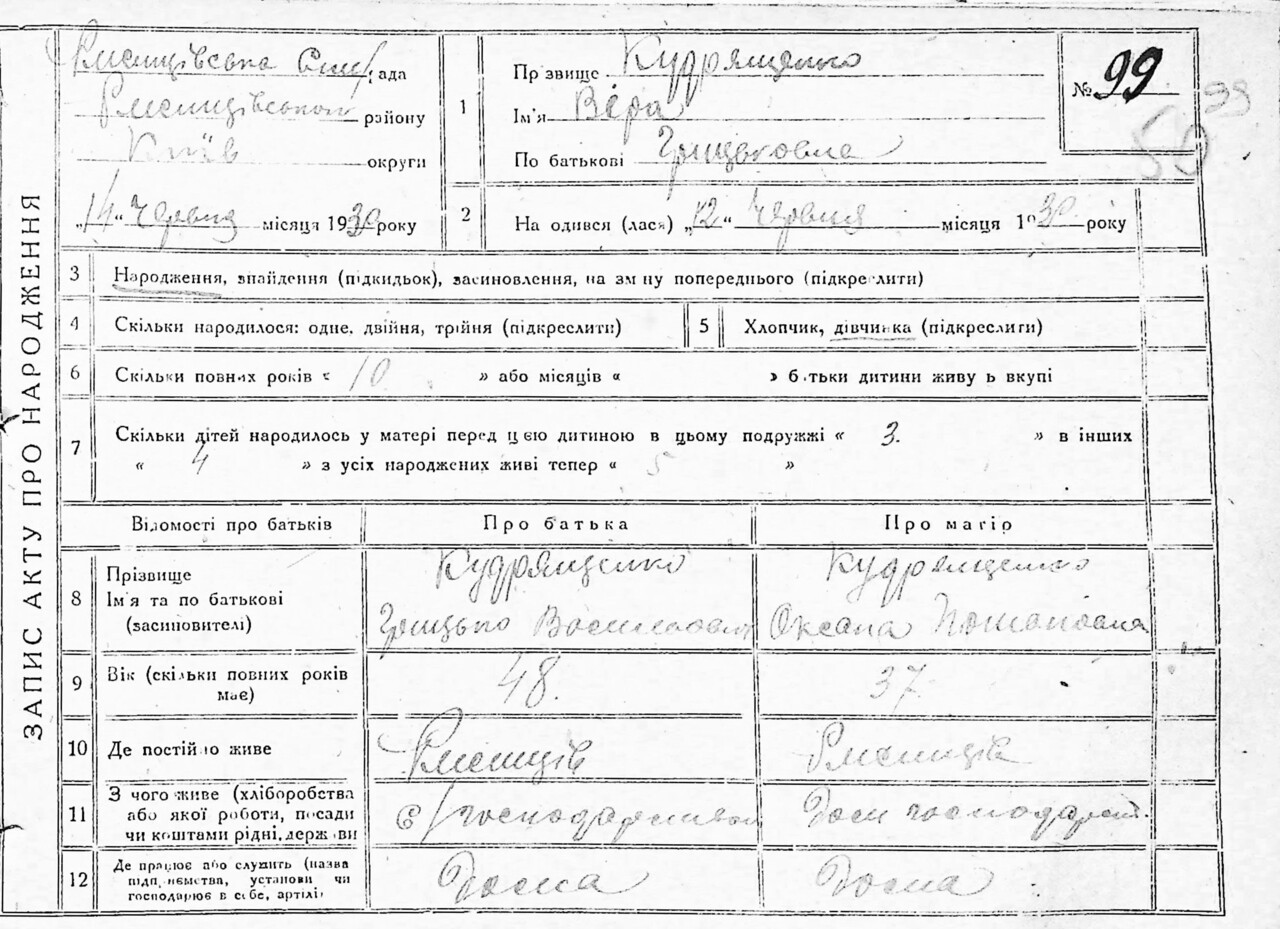 ЗАПИС АКТУ ПРО НАРОДЖЕННЯ
Ржищівська Сил/рада
Ржищівського району
Київ округи
„14“ червня місяця 1930 року
1
Прізвище Кудрященко
Ім'я Віра
По батькові Грицьковна
№ 99
99
50
2
На одився (лася) „12“ червня місяця 1930 року
3
Народження, знайдення (підкидьок), засиновлення, на зм ну попереднього (підкреслити)
4
Скільки народилося: одне, двійня, трійня (підкреслити)
5
Хлопчик, дівчинка (підкреслиги)
6
Скільки повних років « 10 » або місяців « » батьки дитини живу ь вкупі
7
Скільки дітей народилось у матері перед цією дитиною в цьому подружжі « 3. » в інших
« 4 » з усіх народжених живі тепер « 5 »
Відомості про батьків
Про батька
Про матір
8
Прізвище
Ім'я та по батькові
(засиновителі)
Кудрященко
Грицько Васильович
Кудрященко
Оксана Потаповна
9
Вік (скільки повних років
має)
48.
37
10
Де постійно живе
Ржищів
Ржищів
11
З чого живе (хліборобства
або якої роботи, посади
чи коштами рідні, держ ви
с/господарством
Дом господарст.
12
Де працює або служить (назва
підп иємства, установи чи
господарює в себе, артілі)
Дома
Дома